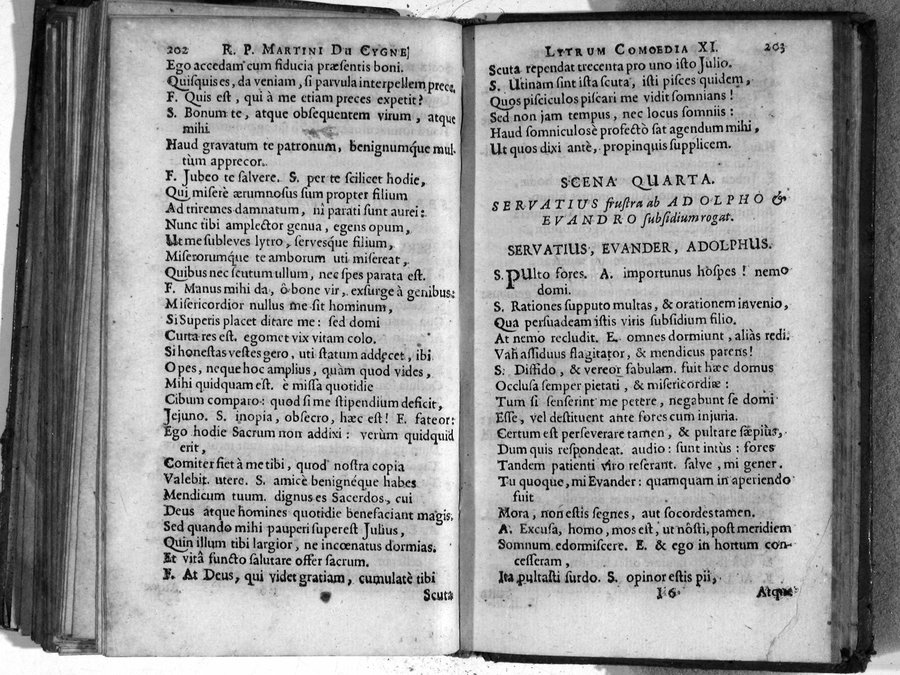 202 R. P. MARTINI DU CYGNE
Ego accedam cum fiducia præsentis boni.
Quisquis es, da veniam, si parvula interpellem prece.
F. Quis est, qui à me etiam preces expetit?
S. Bonum te, atque obsequentem virum, atque
mihi
Haud gravatum te patronum, benignumque mul-
tùm apprecor.
F. Jubeo te salvere. S. per te scilicet hodie,
Qui miserè ærumnosus sum propter filium
Ad triremes damnatum, nì parati sunt aurei:
Nunc tibi amplector genua, egens opum,
Ut me subleves lytro, servesque filium,
Miserorumque te amborum uti misereat,
Quibus nec scutum ullum, nec spes parata est.
F. Manus mihi da, ô bone vir, exsurge à genibus:
Misericordior nullus me sit hominum,
Si Superis placet ditare me: sed domi
Curta res est. egomet vix vitam colo.
Si honestas vestes gero, uti statum addecet, ibi
Opes, neque hoc ampliùs, quàm quod vides,
Mihi quidquam est. è missa quotidie
Cibum comparo: quod si me stipendium deficit,
Jejuno. S. inopia, obsecro, hæc est! F. fateor:
Ego hodie Sacrum non addixi: verùm quidquid
erit,
Comiter fiet à me tibi, quod nostra copia
Valebit. utere. S. amicè benignéque habes
Mendicum tuum. dignus es Sacerdos, cui
Deus atque homines quotidie benefaciant magis.
Sed quando mihi pauperi superest Julius,
Quin illum tibi largior, ne incœnatus dormias.
Et vitâ functo salutare offer sacrum.
F. At Deus, qui videt gratiam, cumulatè tibi
Scuta
LYTRUM COMOEDIA XI. 203
Scuta rependat trecenta pro uno isto Julio.
S. Utinam sint ista scuta, isti pisces quidem,
Quos pisciculos piscari me vidit somnians!
Sed non jam tempus, nec locus somniis:
Haud somniculosè profectò sat agendum mihi,
Ut quos dixi antè, propinquis supplicem.
SCENA QUARTA.
SERVATIUS frustra ab ADOLPHO &
EVANDRO subsidium rogat.
SERVATIUS, EVANDER, ADOLPHUS.
S. PUlto fores. A. importunus hospes! nemo
domi.
S. Rationes supputo multas, & orationem invenio,
Qua persuadeam istis viris subsidium filio.
At nemo recludit. E. omnes dormiunt, aliàs redi.
Vah assiduus flagitator, & mendicus parens!
S. Diffido, & vereor fabulam. fuit hæc domus
Occlusa semper pietati, & misericordiæ:
Tum si senserint me petere, negabunt se domi
Esse, vel destituent ante fores cum injuria.
Certum est perseverare tamen, & pultare sæpius,
Dum quis respondeat. audio: sunt intùs: fores
Tandem patienti viro reserant. salve, mi gener.
Tu quoque, mi Evander: quamquam in aperiendo
fuit
Mora, non estis segnes, aut socordes tamen.
A. Excusa, homo, mos est, ut nôsti, post meridiem
Somnum edormiscere. E. & ego in hortum con-
cesseram,
Ita pultasti surdo. S. opinor estis pii,
I 6 Atque